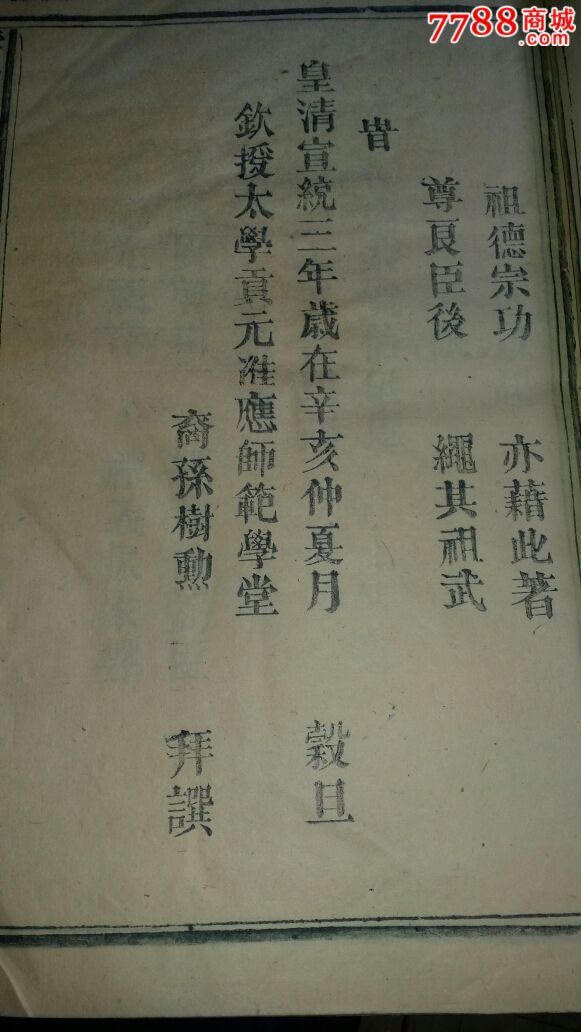 7788商城
.com
祖德宗功　亦藉此著
尊良臣後　繩其祖武
旹
皇清宣統三年歲在辛亥仲夏月　穀旦
欽授太學貢元准應師範學堂
裔孫樹勲　拜譔